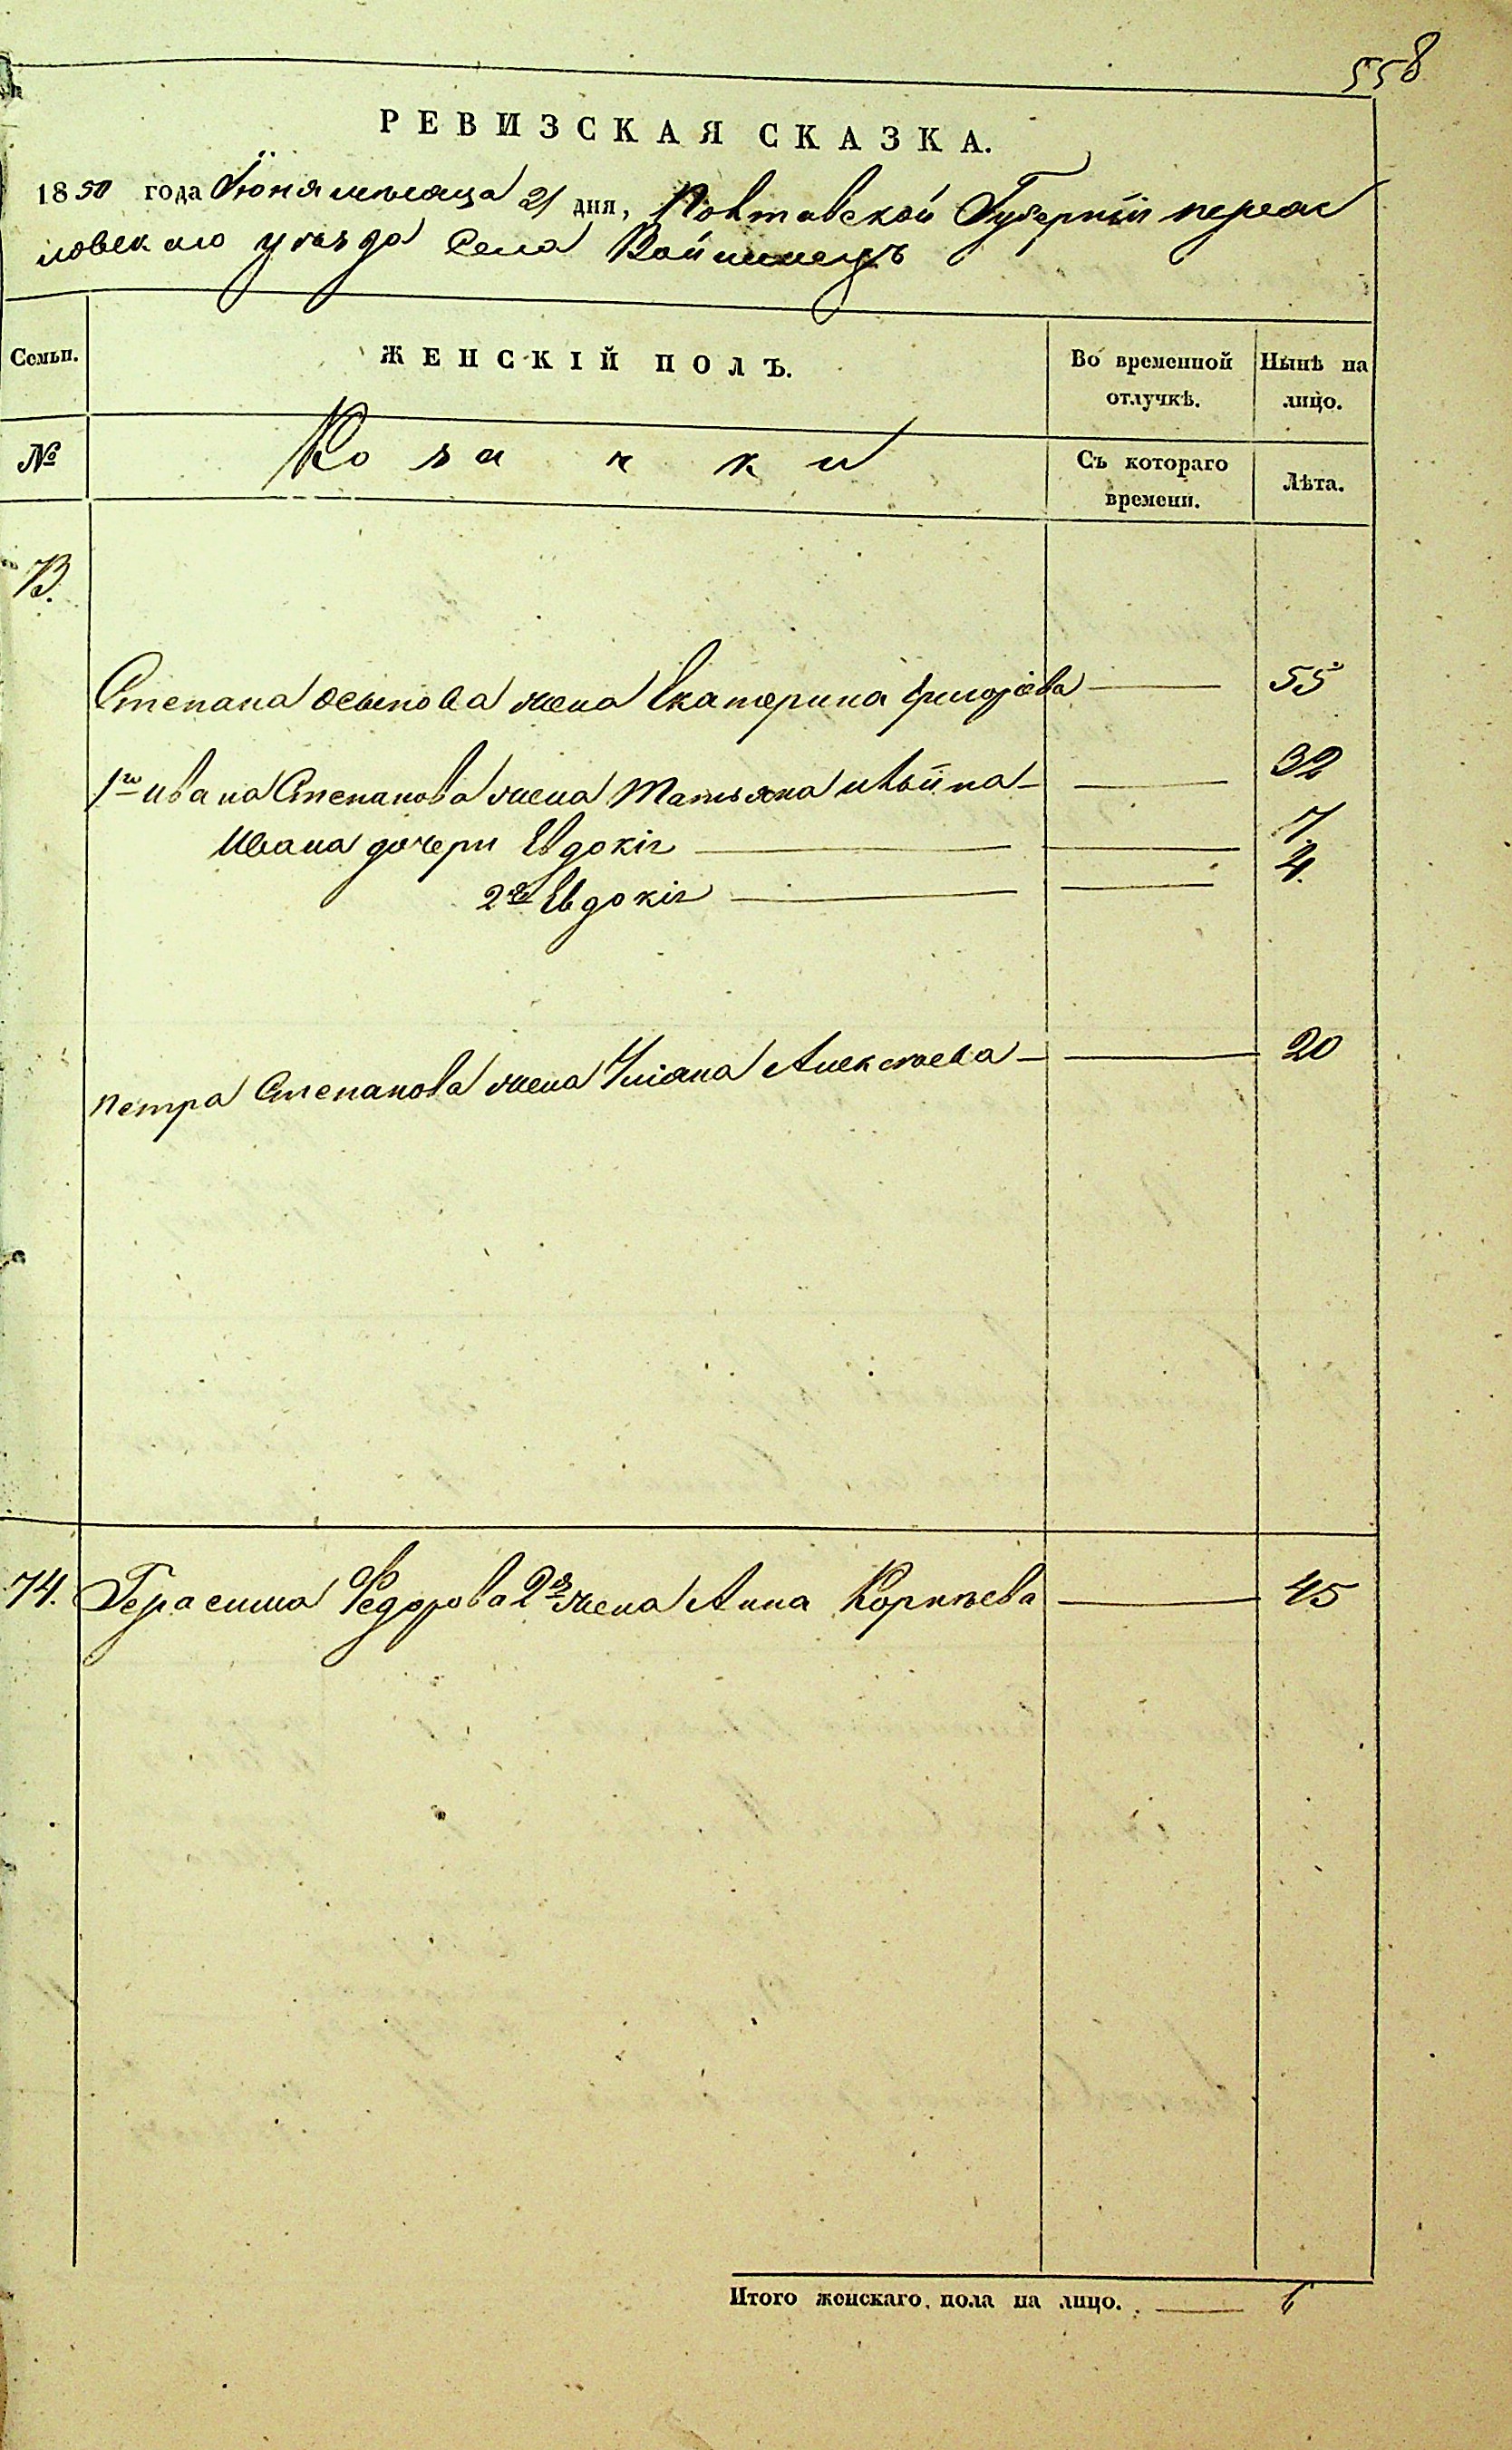 558
РЕВИЗСКАЯ СКАЗКА.
1850 года Іюня мѣсяца 21 дня, Полтавской Губерніи переяс
ловскаго уѣзда Села Войтинецъ
Семьи. ЖЕНСКІЙ ПОЛЪ. Во временной отлучкѣ. Нынѣ на лицо.
№ Козачки Съ котораго времени. Лѣта.
73.
Степана Осыпова жена Екатерина Григоріева 55
1го ивана Степанова жена Татьяна 32
Ивана дочери Евдокія 7.
2я Евдокія 4.
Петра Степанова жена Уліана Алексѣева 20
74. Герасима Федорова 2я жена Анна Корнѣева 45
Итого женскаго пола на лицо. 6